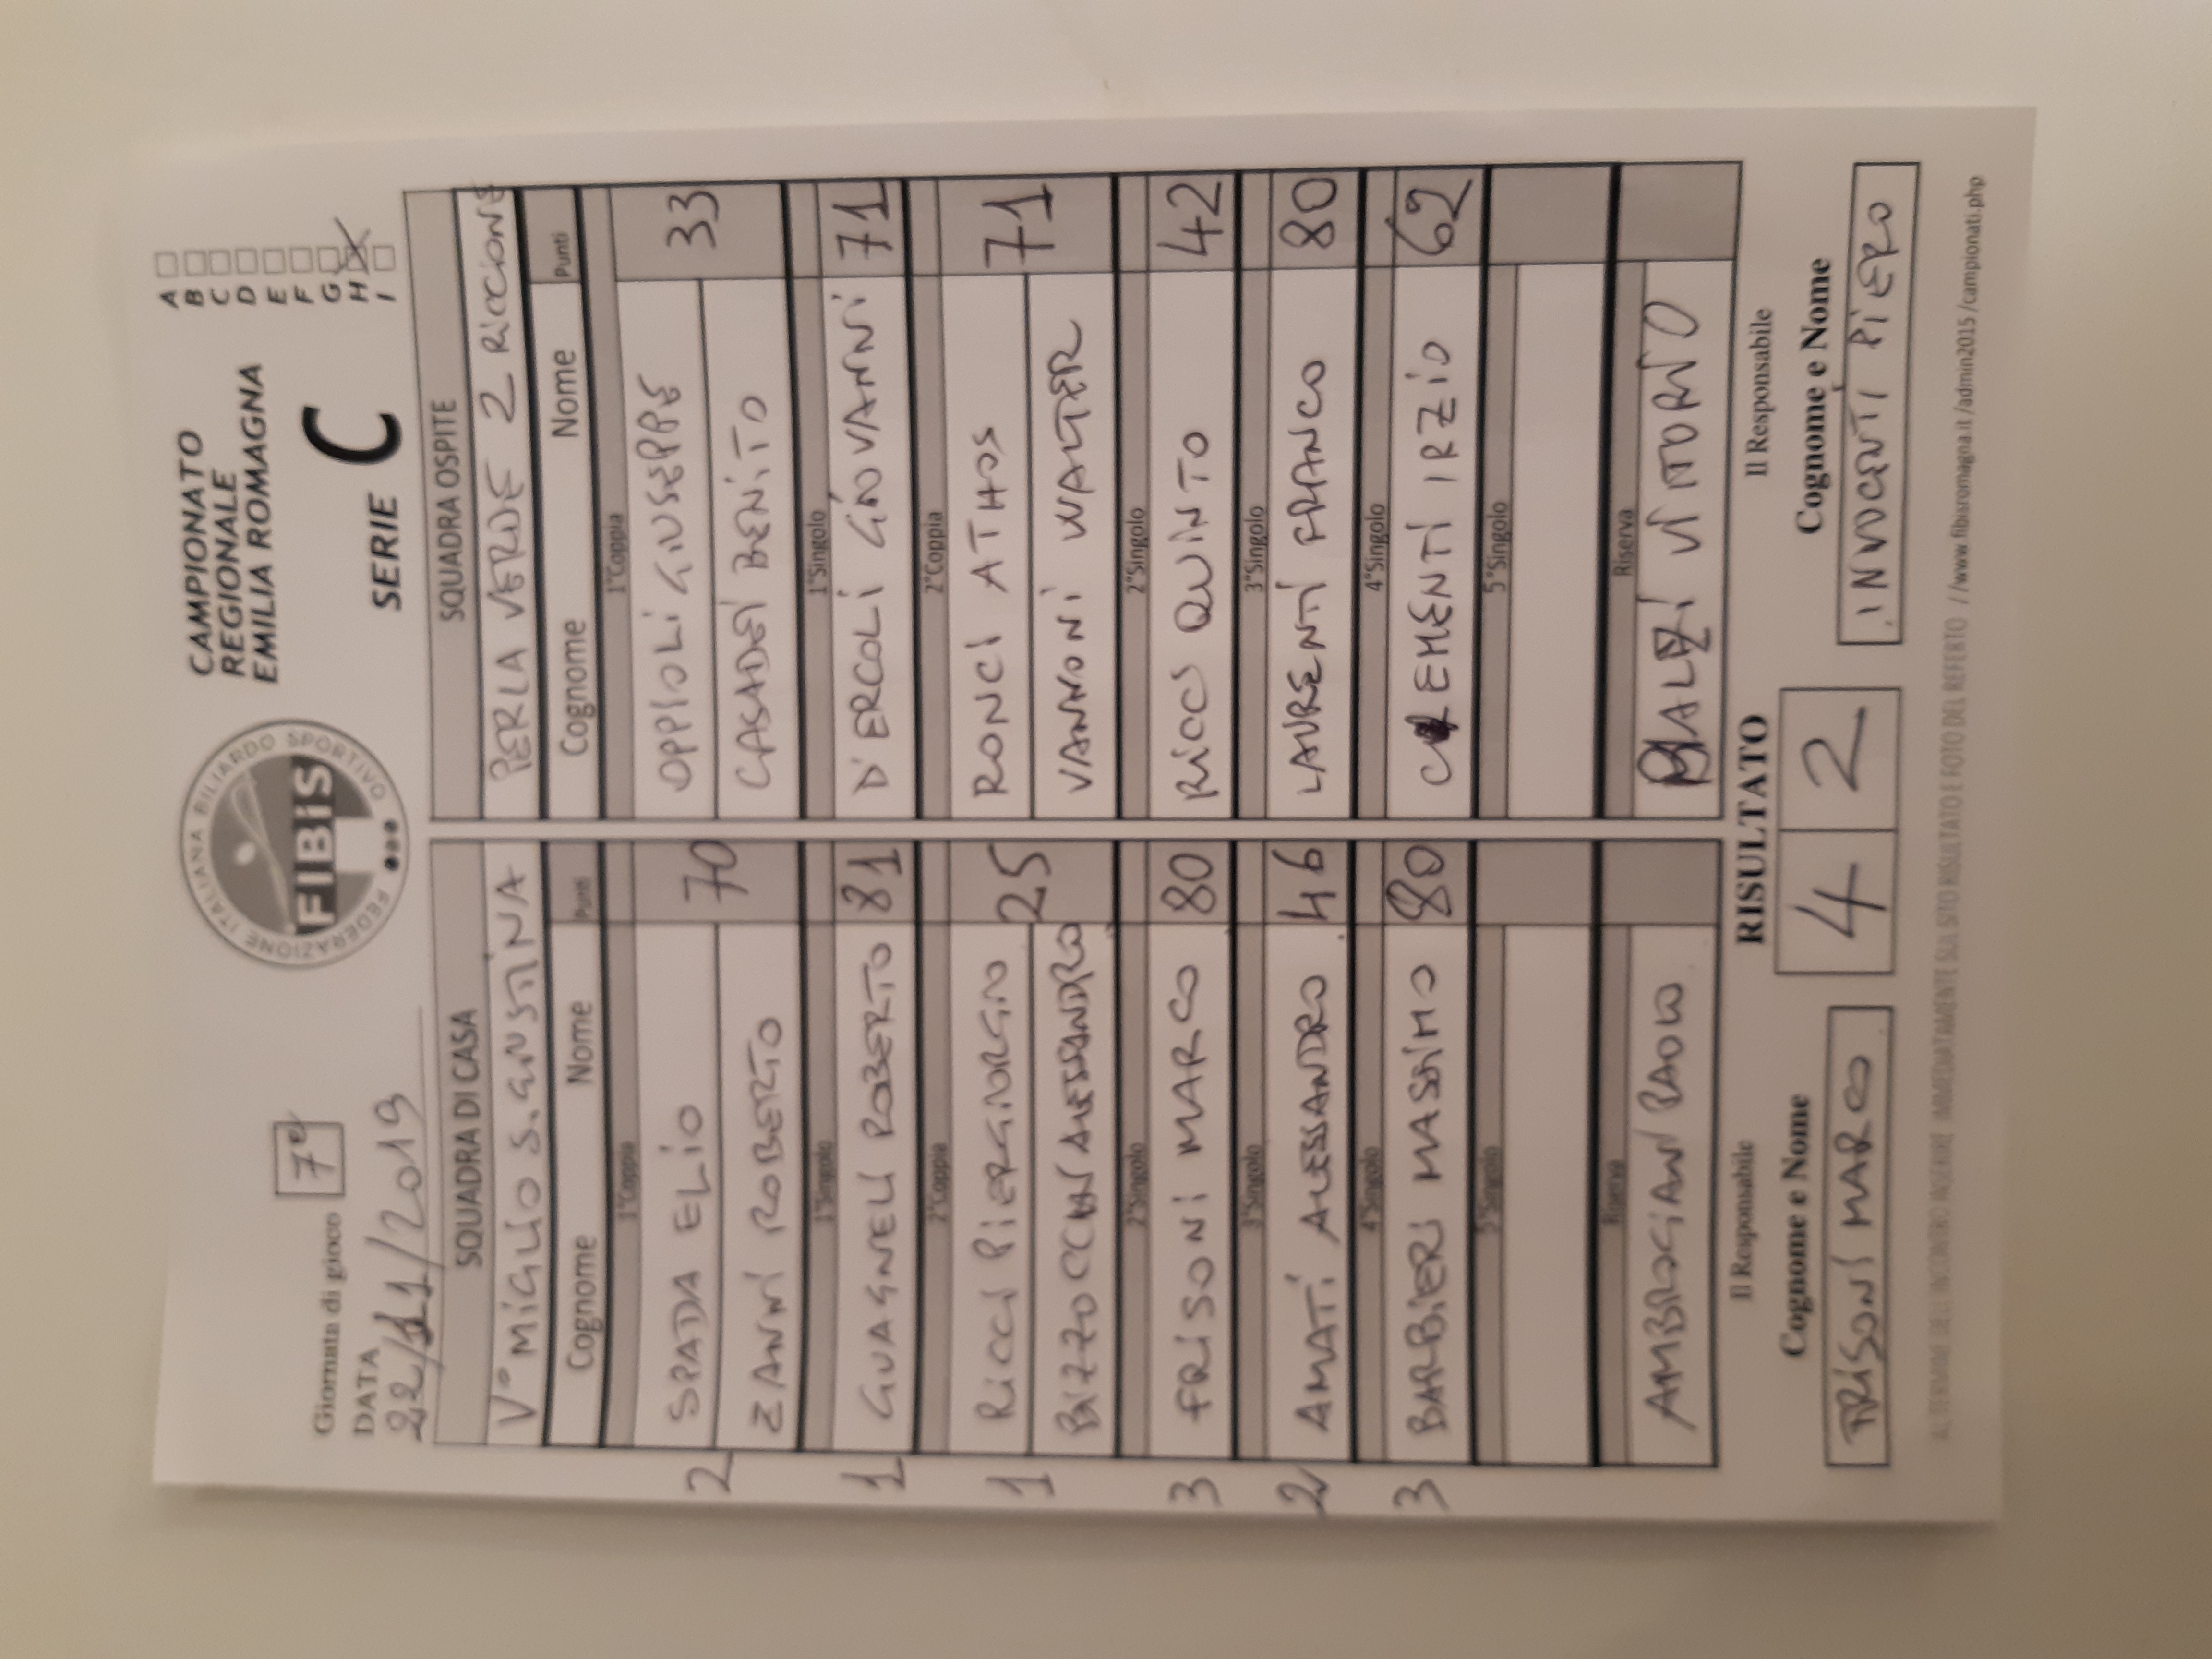 Giornata di gioco 7ª
DATA
22/11/2019
FEDERAZIONE ITALIANA BILIARDO SPORTIVO
FIBiS
CAMPIONATO
REGIONALE
EMILIA ROMAGNA
SERIE C
A
B
C
D
E
F
G
H X
I
SQUADRA DI CASA SQUADRA OSPITE
V° MIGLIO S. GIUSTINA PERLA VERDE 2 RICCIONE
Cognome Nome Punti Cognome Nome Punti
1°Coppia 1°Coppia
2 SPADA ELIO 70 OPPIOLI GIUSEPPE 33
ZANNI ROBERTO CASADEI BENITO
1°Singolo 1°Singolo
1 GUAGNELI ROBERTO 81 D'ERCOLI GIOVANNI 71
2°Coppia 2°Coppia
1 RICCI PIERGIORGIO 25 RONCI ATHOS 71
BIZZOCCHI ALESSANDRO VANNONI WALTER
2°Singolo 2°Singolo
3 FRISONI MARCO 80 RICCI QUINTO 42
3°Singolo 3°Singolo
2 AMATI ALESSANDRO 46 LAURENTI FRANCO 80
4°Singolo 4°Singolo
3 BARBIERI MASSIMO 80 CLEMENTI IRZIO 62
5°Singolo 5°Singolo
Riserva Riserva
AMBROGIANI PAOLO BALZI VITTORIO
Il Responsabile RISULTATO Il Responsabile
Cognome e Nome 4 2 Cognome e Nome
FRISONI MARCO INNOCENTI PIERO
AL TERMINE DELL'INCONTRO INSERIRE IMMEDIATAMENTE SUL SITO RISULTATO E FOTO DEL REFERTO //www.fibisromagna.it/admin2015/campionati.php